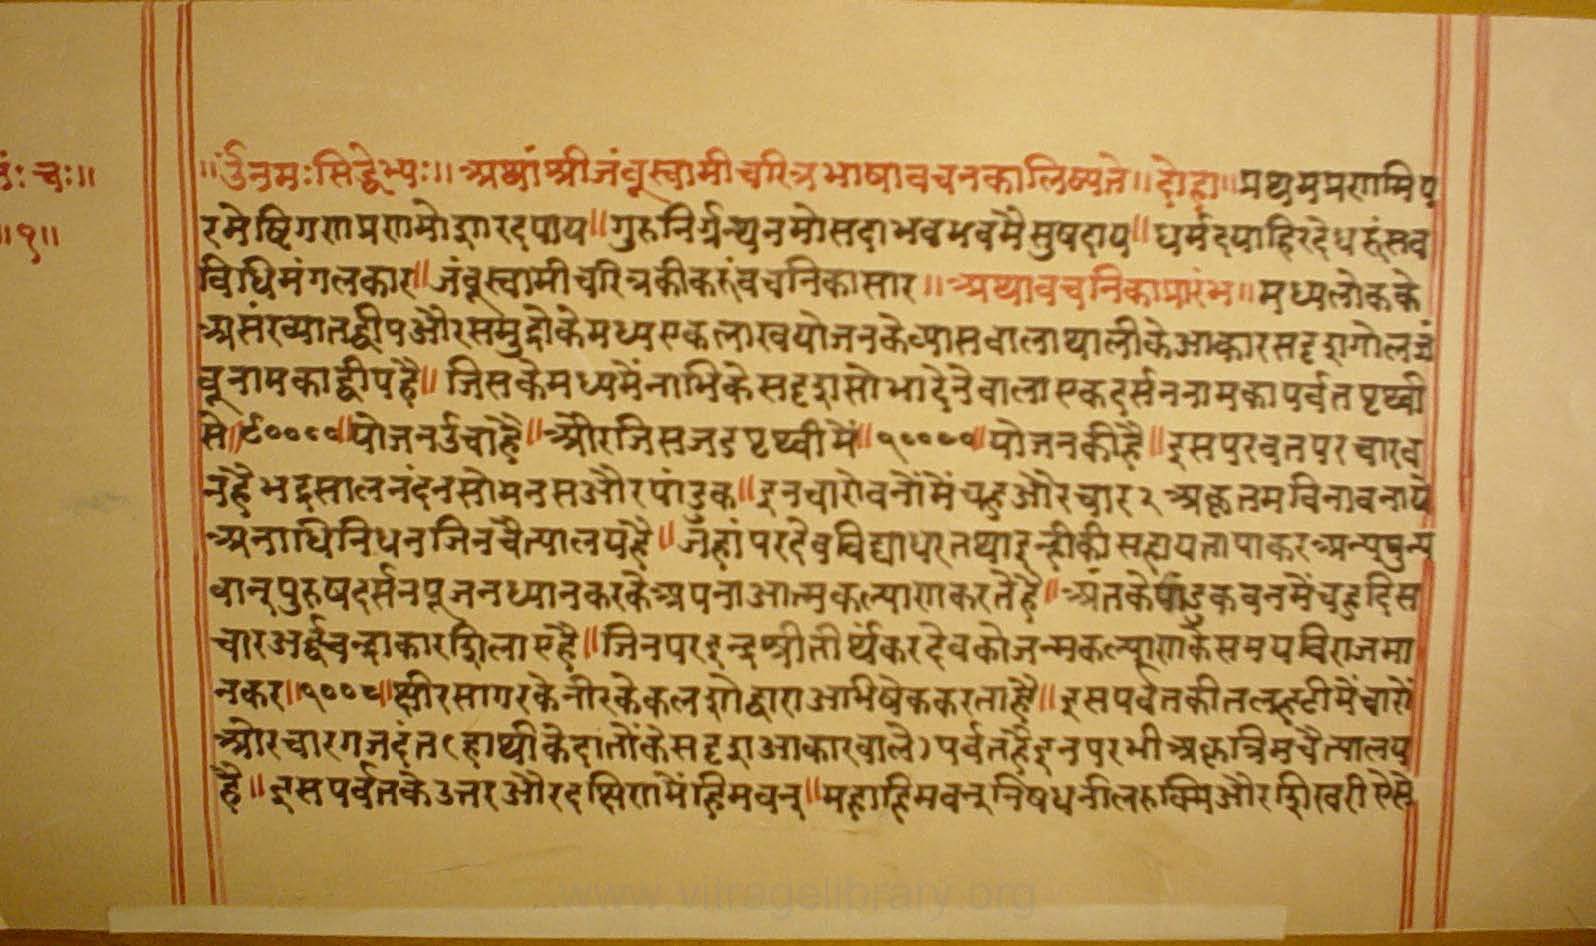 जं: च:॥
॥१॥
॥ॐ नमः सिद्धेभ्यः॥ अथां श्री जंवूस्वामी चरित्र भाषा वचनका लिष्यते॥ दोहा॥ प्रथम प्रणमि प
रमेष्ठि गण प्रणमो शारद पाय॥ गुरु निर्ग्रन्थ नमो सदा भव भव मै सुषदाय॥ धर्म दया हिरदे धरूं सव
विधि मंगलकार॥ जंवूस्वामी चरित्र की करूं वचनिका सार॥ अथा वचनिका प्रारंभ॥ मध्यलोक के
असंख्यात द्वीप और समुद्रो के मध्य एक लाख योजन के व्यास वाला थाली के आकार सदृश गोल जं
वू नाम का द्वीप है॥ जिस के मध्य मैं नाभि के सदृश सोभा देने वाला एक दर्सन नाम का पर्वत पृथ्वी
से॥ ९९०००॥ योजन उंचा है॥ और जिस जड पृथ्वी में॥ १००००॥ योजन की है॥ इस परवत पर चार व
न है भद्रसाल नंदन सोमनस और पांडुक॥ इन चारो वनों में चहु और चार २ अकृतम विना वनाये
अनाधि निधन जिन चैत्यालय है॥ जँहां पर देव विद्याधर तथा इन्ही की सहायता पाकर अन्य पुन्य
वान् पुरुष दर्सन पूजन ध्यान करके अपना आत्म कल्याण करते है॥ अंत के पांडुक वन मैं चहु दिस
चार अर्द्ध चन्द्राकार शिलाए है॥ जिन पर इन्द्र श्री तीर्थंकर देव को जन्म कल्याण के समय विराजमा
न कर॥ १००८॥ क्षीर सागर के नीर के कलशो द्वारा अभिषेक करता है॥ इस पर्वत की तलहटी मैं चारों
ओर चार गजदंत (हाथी के दातों के सदृश आकार वाले) पर्वत है इन पर भी अकृत्रिम चैत्यालय
है॥ इस पर्वत के उत्तर और दक्षिण में हिमवन्॥ महाहिमवन् निषध नील रुक्मि और शिखरी ऐसे
www.vitragelibrary.org